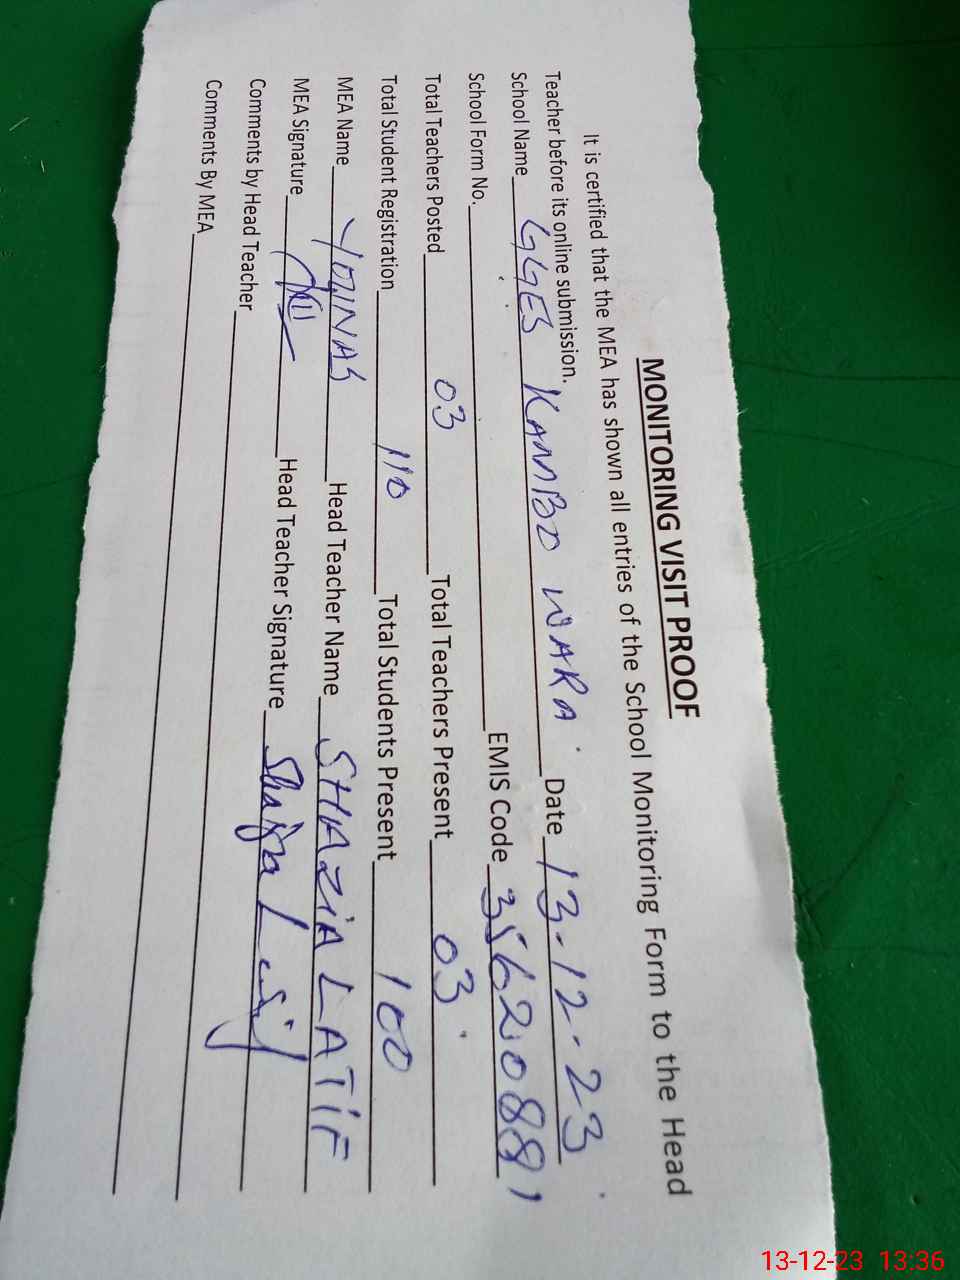 MONITORING VISIT PROOF
It is certified that the MEA has shown all entries of the School Monitoring Form to the Head
Teacher before its online submission.
School Name GGES KAMBO WARA Date 13-12-23
School Form No. EMIS Code 35620881
Total Teachers Posted 03 Total Teachers Present 03
Total Student Registration 110 Total Students Present 100
MEA Name YOUNAS Head Teacher Name SHAZIA LATIF
MEA Signature Head Teacher Signature Shazia
Comments by Head Teacher
Comments By MEA
13-12-23 13:36